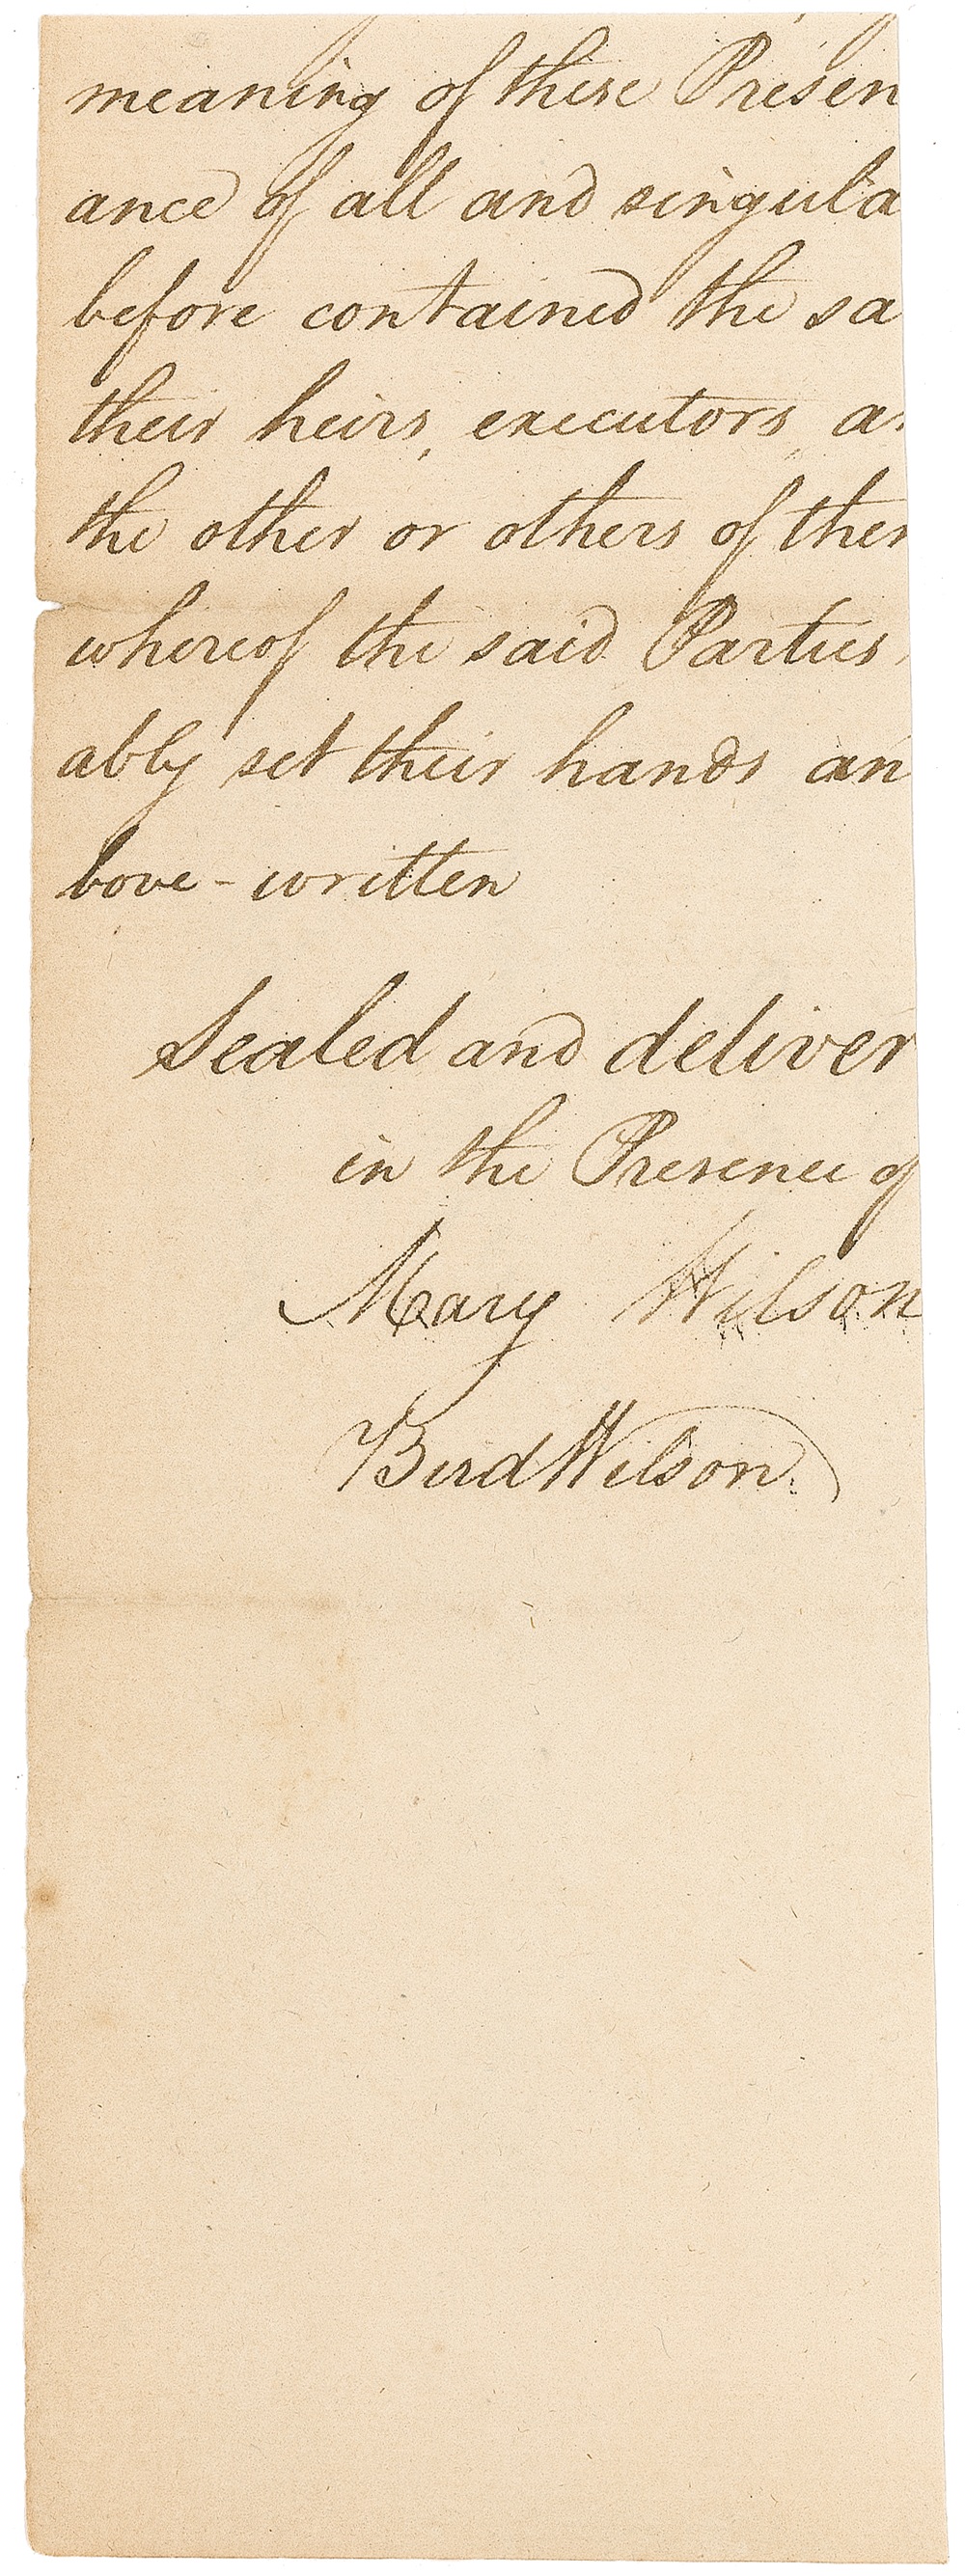 meaning of these Presen
ance of all and singula
before contained the sa
their heirs, executors, a
the other or others of them
whereof the said Parties,
ably set their hands an
bove-written
Sealed and deliver
in the Presence of
Mary Wilson
Bird Wilson